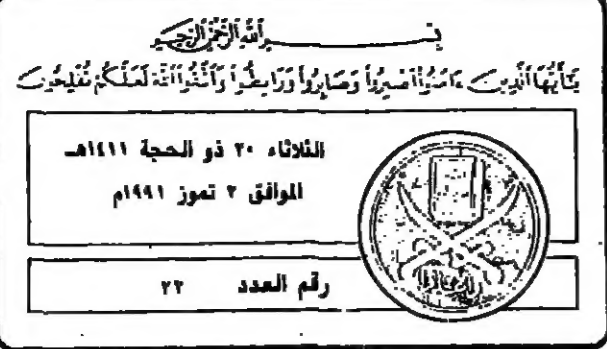 بسم الله الرحمن الرحيم
يَٰٓأَيُّهَا ٱلَّذِينَ ءَامَنُوا۟ ٱصْبِرُوا۟ وَصَابِرُوا۟ وَرَابِطُوا۟ وَٱتَّقُوا۟ ٱللَّهَ لَعَلَّكُمْ تُفْلِحُونَ
الثلاثاء ٢٠ ذو الحجة ١٤١١هـ
الموافق ٢ تموز ١٩٩١م
رقم العدد ٢٢